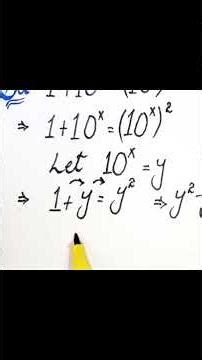 1+10
⇒ 1+10ˣ=(10ˣ)²
Let 10ˣ=y
⇒ 1+y=y² ⇒ y²-